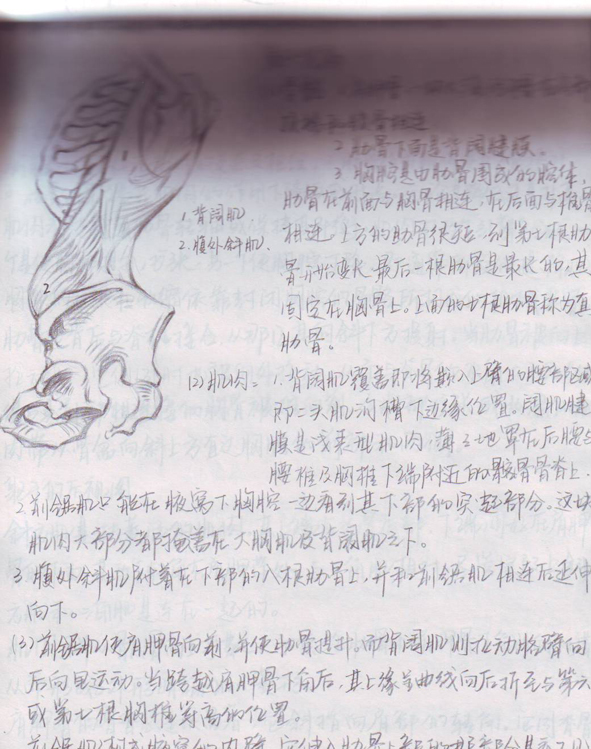 顶椎和腰骨相连
2 肋骨下面是背阔腱膜。
3 胸腔是由肋骨围成的腔体,
肋骨在前面与胸骨相连,在后面与椎骨
相连。上方的肋骨很短,到第七根肋
骨开始变长,最后一根肋骨是最长的,其
固定在胸骨上。上面的七根肋骨称为真
肋骨。
1
1. 背阔肌
2. 腹外斜肌、
2
(2) 肌肉。1. 背阔肌覆盖即将插入上臂的腰部区域
即二头肌沟槽下边缘位置。阔肌腱
膜是成束型肌肉,薄薄地罩在后腰与
腰椎及胸椎下端附近的髂骨骨脊上.
2. 前锯肌只能在腋窝下胸腔一边看到其下部的突起部分。这块
肌肉大部分都掩盖在大胸肌及背阔肌之下。
3. 腹外斜肌附着在下部的八根肋骨上,并和前锯肌相连后延伸
向下。
(3) 前锯肌使肩胛骨向前,并使肋骨提升。而背阔肌则拉动胳臂向
后向里运动。当跨越肩胛骨下角后,其上缘呈曲线向后折至与第六
或第七根胸椎等高的位置。
前锯肌